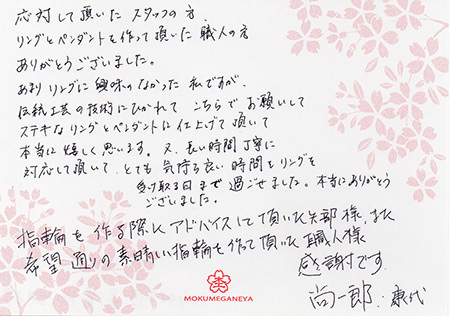 応対して頂いた スタッフの方、
リングとペンダントを作って頂いた 職人の方
ありがとうございました。
あまり リングに 興味のなかった 私ですが、
伝統工芸の技術にひかれて こちらで お願いして
ステキなリングとペンダントに仕上げて 頂いて
本当に 嬉しく 思います。又、長い時間 丁寧に
対応して頂いて、とても 気持ち良い 時間を リングを
受け取る日まで 過ごせました。本当にありがとう
ございました。
指輪を 作る際に アドバイスして頂いた矢部様、また
希望通りの素晴しい指輪を作って頂いた 職人様
感謝です
尚一郎・恵代
MOKUMEGANEYA